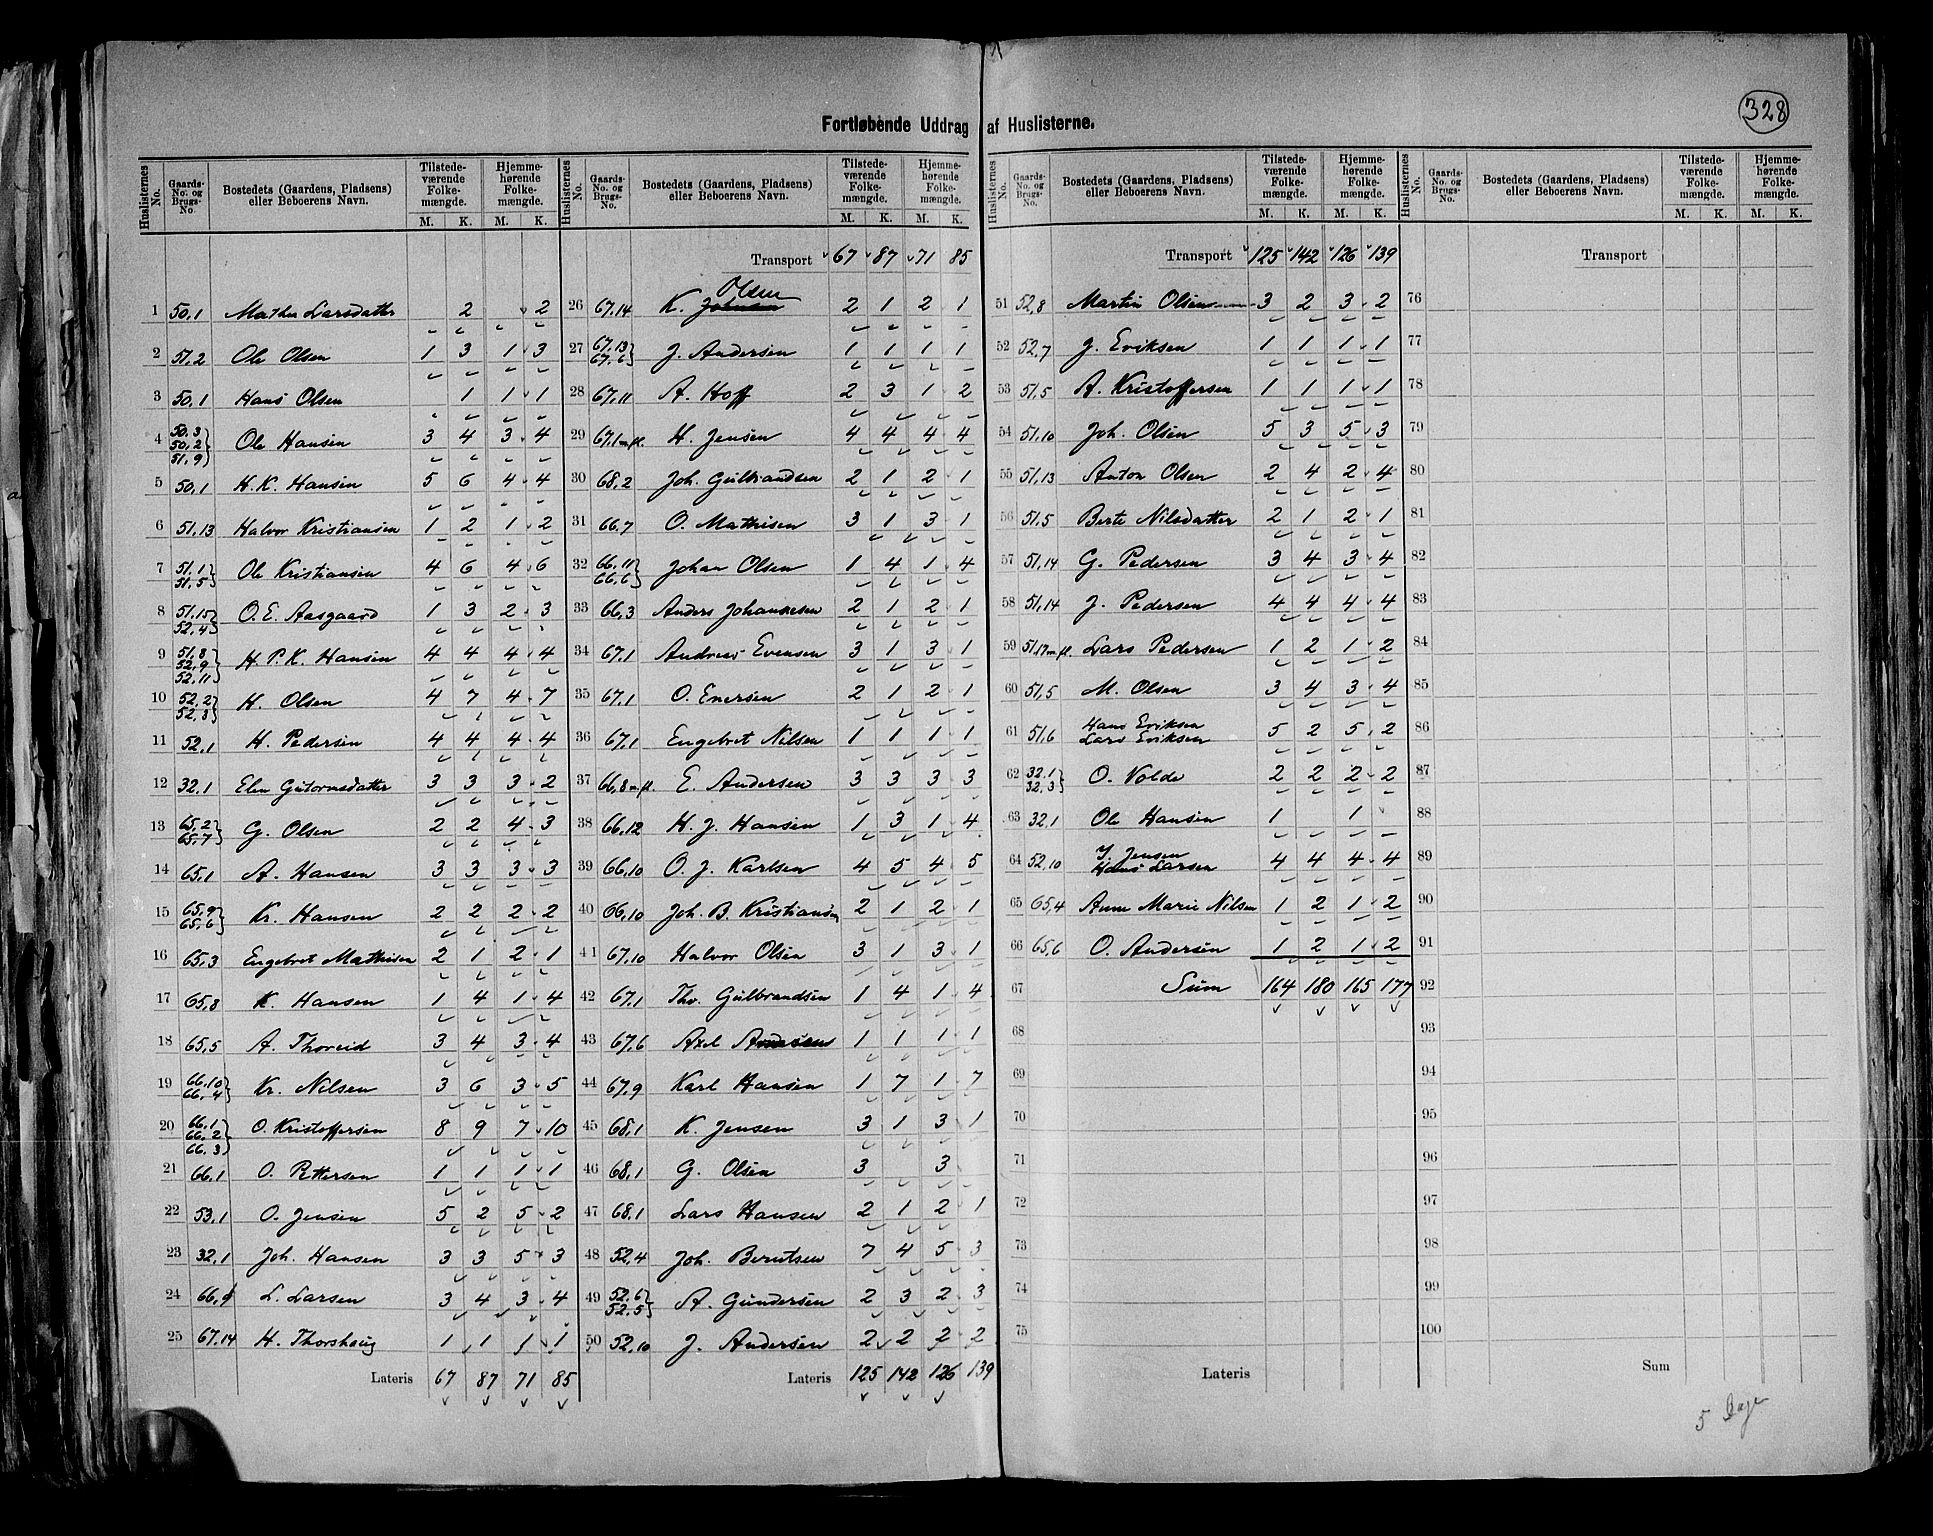 328
Fortløbende Uddrag af Huslisterne.
Huslisternes No. | Gaards-No. og Brugs-No. | Bostedets (Gaardens, Pladsens) eller Beboerens Navn. | Tilstedeværende Folkemængde. M. K. | Hjemmehørende Folkemængde. M. K.
1 50,1 Mathea Larsdatter 2 2
2 51,2 Ole Olsen 1 3 1 3
3 50,1 Hans Olsen 1 1 1
4 50,3 50,2 51,9 Ole Hansen 3 4 3 4
5 50,1 H. K. Hansen 5 6 4 4
6 51,13 Halvor Kristiansen 1 2 1 2
7 51,1 51,5 Ole Kristiansen 4 6 4 6
8 51,15 52,4 O. E. Aasgaard 1 3 2 3
9 51,8 52,9 52,11 H. P. K. Hansen 4 4 4 4
10 52,2 52,3 H. Olsen 4 7 4 7
11 52,1 H. Pedersen 4 4 4 4
12 32,1 Elen Gutormsdatter 3 3 3 2
13 65,2 65,7 G. Olsen 2 2 4 3
14 65,1 A. Hansen 3 3 3 3
15 65,9 65,6 Kr. Hansen 2 2 2 2
16 65,3 Engebret Mathisen 2 1 2 1
17 65,8 K. Hansen 1 4 1 4
18 65,5 A. Thoreid 3 4 3 4
19 66,10 66,4 Kr. Nilsen 3 6 3 5
20 66,1 66,2 66,3 O. Kristoffersen 8 9 7 10
21 66,1 O. Pettersen 1 1 1 1
22 53,1 O. Jensen 5 2 5 2
23 32,1 Joh. Hansen 3 3 5 3
24 66,9 L. Larsen 3 4 3 4
25 67,14 H. Thorshaug 1 1 1 1
Lateris 67 87 71 85
Huslisternes No. | Gaards-No. og Brugs-No. | Bostedets (Gaardens, Pladsens) eller Beboerens Navn. | Tilstedeværende Folkemængde. M. K. | Hjemmehørende Folkemængde. M. K.
Transport 67 87 71 85
26 67,14 K. Olsen 2 1 2 1
27 67,13 67,6 J. Andersen 1 1 1 1
28 67,11 A. Hoff 2 3 1 2
29 67,1 m fl. H. Jensen 4 4 4 4
30 68,2 Joh. Gulbrandsen 2 1 2 1
31 66,7 O. Mathisen 3 1 3 1
32 66,11 66,6 Johan Olsen 1 4 1 4
33 66,3 Anders Johannesen 2 1 2 1
34 67,1 Andreas Evensen 3 1 3 1
35 67,1 O. Enersen 2 1 2 1
36 67,1 Engebret Nilsen 1 1 1 1
37 66,8 m fl. E. Andersen 3 3 3 3
38 66,12 H. J. Hansen 1 3 1 4
39 66,10 O. J. Karlsen 4 5 4 5
40 66,10 Joh. B. Kristiansen 2 1 2 1
41 67,10 Halvor Olsen 3 1 3 1
42 67,1 Thv. Gulbrandsen 1 4 1 4
43 67,6 Axel 1 1 1 1
44 67,9 Karl Hansen 1 7 1 7
45 68,1 K. Jensen 3 1 3 1
46 68,1 G. Olsen 3 3
47 68,1 Lars Hansen 2 1 2 1
48 52,4 Joh. Berntsen 7 4 5 3
49 52,6 52,5 A. Gundersen 2 3 2 3
50 52,10 J. Andersen 2 2 2 2
Lateris 125 142 126 139
Huslisternes No. | Gaards-No. og Brugs-No. | Bostedets (Gaardens, Pladsens) eller Beboerens Navn. | Tilstedeværende Folkemængde. M. K. | Hjemmehørende Folkemængde. M. K.
Transport 125 142 126 139
51 52,8 Martin Olsen 3 2 3 2
52 52,7 J. Eriksen 1 1 1 1
53 51,5 A. Kristoffersen 1 1 1 1
54 51,10 Joh. Olsen 5 3 5 3
55 51,13 Anton Olsen 2 4 2 4
56 51,5 Berte Nilsdatter 2 1 2 1
57 51,14 G. Pedersen 3 4 3 4
58 51,14 J. Pedersen 4 4 4 4
59 51,17 m fl. Lars Pedersen 1 2 1 2
60 51,5 M. Olsen 3 4 3 4
61 51,6 Hans Eriksen Lars Eriksen 5 2 5 2
62 32,1 32,3 O. Volde 2 2 2 2
63 32,1 Ole Hansen 1 1
64 52,10 Jensen Hans Larsen 4 4 4 4
65 65,4 Anne Marie Nilsen 1 2 1 2
66 65,6 O. Andersen 1 2 1 2
67 Sum 164 180 165 177
68
69
70
71
72
73
74
75
Lateris
Huslisternes No. | Gaards-No. og Brugs-No. | Bostedets (Gaardens, Pladsens) eller Beboerens Navn. | Tilstedeværende Folkemængde. M. K. | Hjemmehørende Folkemængde. M. K.
Transport
76
77
78
79
80
81
82
83
84
85
86
87
88
89
90
91
92
93
94
95
96
97
98
99
100
Sum
5 Dage